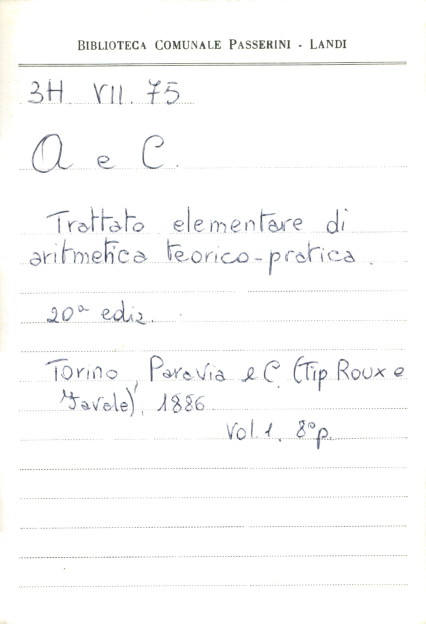 BIBLIOTECA COMUNALE PASSERINI - LANDI
3H VII. 75
A e C.
Trattato elementare di
aritmetica teorico-pratica.
20ª ediz.
Torino, Paravia e C. (Tip Roux e
Favale), 1886
Vol. 1. 8° p.